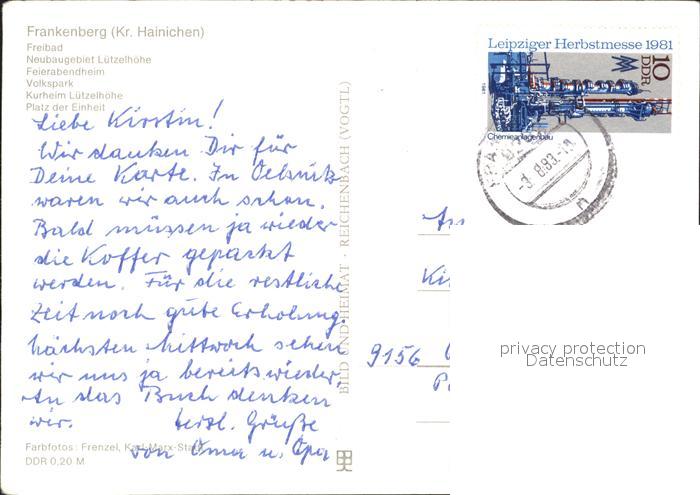 Frankenberg (Kr. Hainichen)
Freibad
Neubaugebiet Lützelhöhe
Feierabendheim
Volkspark
Kurheim Lützelhöhe
Platz der Einheit
Liebe Kirstin!
Wir danken Dir für
Deine Karte. In Oelsnitz
waren wir auch schon.
Bald müssen ja wieder
die Koffer gepackt
werden. Für die restliche
Zeit noch gute Erholung.
Nächsten Mittwoch sehen
wir uns ja bereits wieder
An das Buch denken
wir. Herzl. Grüße
von Oma u. Opa
Farbfotos: Frenzel, Karl-Marx-Stadt
DDR 0,20 M
BILD UND HEIMAT · REICHENBACH (VOGTL)
Leipziger Herbstmesse 1981
10
DDR
1981
Chemieanlagenbau
An
Ki
9156
privacy protection
Datenschutz